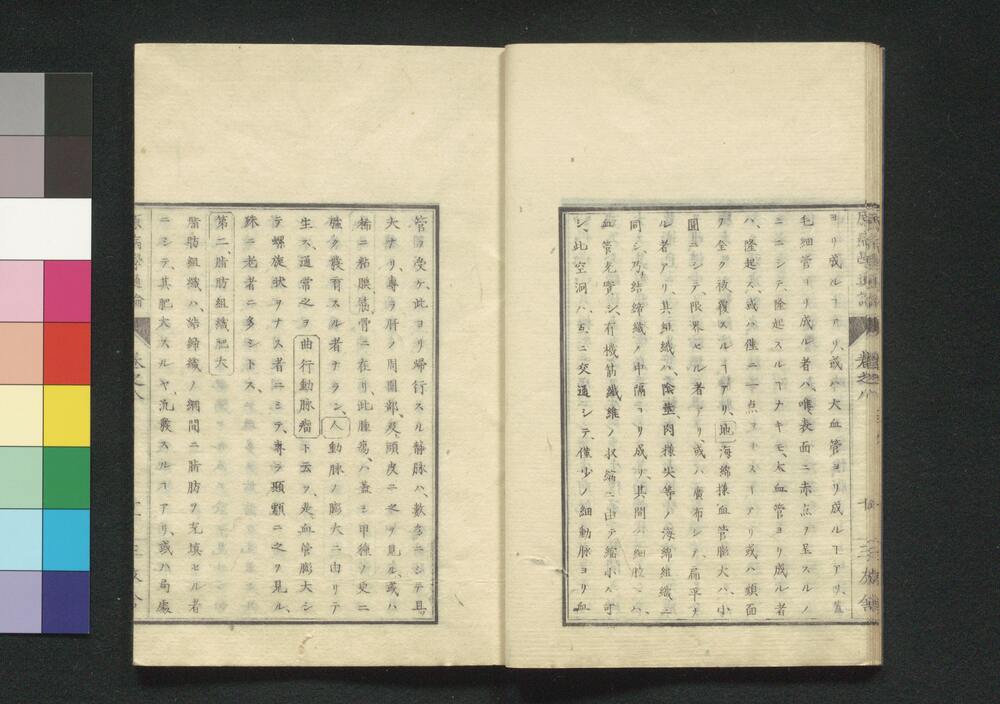 ヨリ或ルヿアリ、或ハ大血管ヨリ成ルヿアリ、蓋
毛細管ヨリ成ル者ハ、唯表面ニ赤点ヲ呈スルノ
ミニシテ、隆起スルヿナキモ、大血管ヨリ成ル者
ハ、隆起ス、或ハ僅ニ一点ヲナスヿアリ或ハ顔面
ヲ全ク被覆スルヿアリ、地海綿様血管膨大ハ、小
圓ニシテ、限界セル者アリ、或ハ廣布シテ、扁平ナ
ル者アリ、其組織ハ、陰莖、肉様尖等ノ海綿組織ニ
同シ、乃結締織ノ中隔ヨリ成リ、其間ノ細腔ニハ、
血管充實シ、有機筋纖維ノ収縮ニ由テ縮小ス可
シ、此空洞ハ、互ニ交通シテ、僅少ノ細動脉ヨリ血
管ヲ受ケ、此ヨリ歸行スル静脉ハ、數多ニシテ且
大ナリ、專ラ肝ノ周圍部及頭皮ニ之ヲ見ル、或ハ
稀ニ粘膜筋骨ニ在リ、此腫瘍ハ、蓋シ甲種ノ更ニ
強ク發育スル者ナラン、人動脉ノ膨大ニ由リテ
生ス、通常之ヲ曲行動脉瘤ト云フ、是血管膨大シ
テ螺旋状ヲナス者ニシテ、專ラ顳顬ニ之ヲ見ル、
殊ニ老者ニ多シトス、
第二、脂肪組織肥大
脂肪組織ハ、結締織ノ網間ニ脂肪ヲ充填セル者
ニシテ、其肥大スルヤ、汎發スルヿアリ、或ハ局處